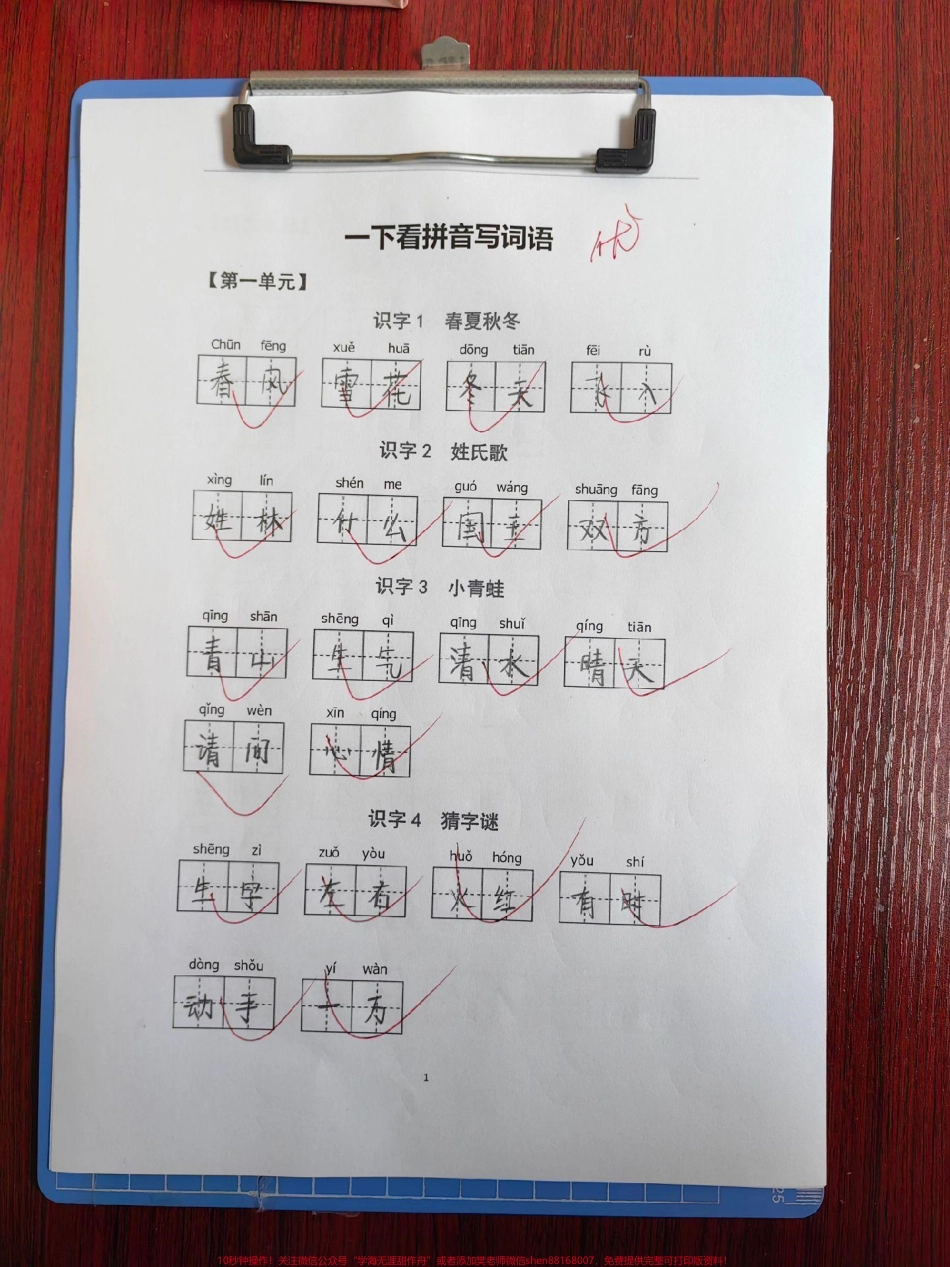 一下看拼音写词语 优
【第一单元】
识字1 春夏秋冬
Chūn fēng xuě huā dōng tiān fēi rù
春风 雪花 冬天 飞入
识字2 姓氏歌
xìng lín shén me guó wáng shuāng fāng
姓林 什么 国王 双方
识字3 小青蛙
qīng shān shēng qì qīng shuǐ qíng tiān
青山 生气 清水 晴天
qǐng wèn xīn qíng
请问 心情
识字4 猜字谜
shēng zì zuǒ yòu huǒ hóng yǒu shí
生字 左右 火红 有时
dòng shǒu yí wàn
动手 一万
1
25
10秒钟操作!关注微信公众号“学海无涯甜作舟”或者添加樊老师微信shen88168007,免费提供完整可打印版资料!